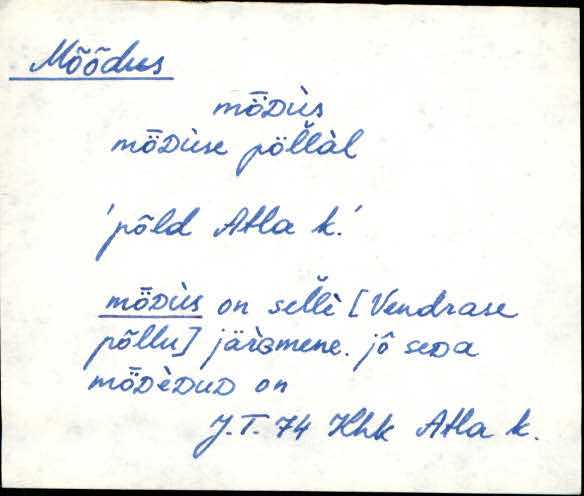 Mõõdus
mȫDùs
mȫDùse pöl̆làl
'põld Atla k.'
mȫDùs on sel̆lè [Vendrase
põllu] järɢmene. jô seDa
mȫDèDuD on
J.T. 74 Khk Atla k.